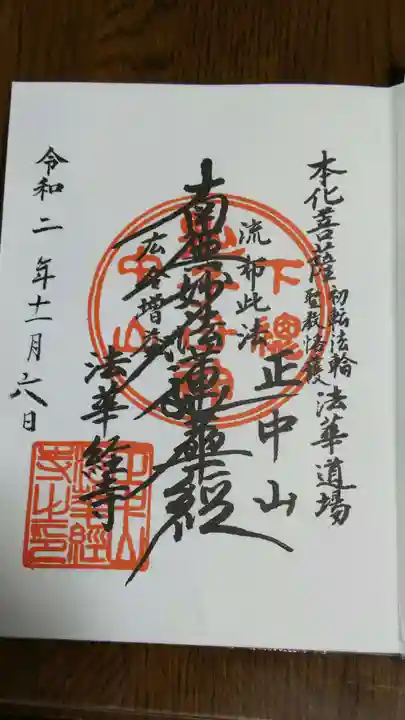 本化菩薩 初転法輪 法華道場
聖教格護
正中山
流布此法
南無妙法蓮華経
広令増益
法華経寺
令和二年十一月六日
下總
中山